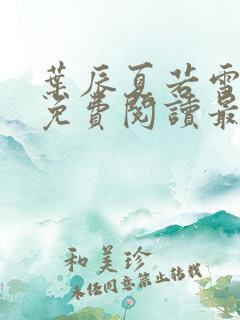 葉辰夏若雪
免費閱讀最
和美珍
未经同意禁止转载